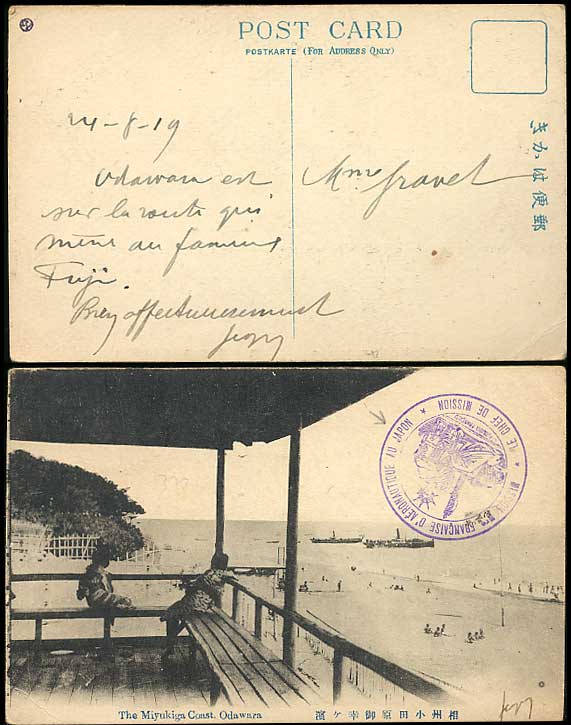 POST CARD
POSTKARTE (FOR ADDRESS ONLY)
きかは便郵
24-8-19
Odawara est
sur la route qui
mène au fameux
Fuji.
Bien affectueusement
Mme Gravel
MISSION FRANÇAISE D'AÉRONAUTIQUE AU JAPON
* LE CHEF DE MISSION *
The Miyukiga Coast. Odawara
相州小田原御幸ケ濱